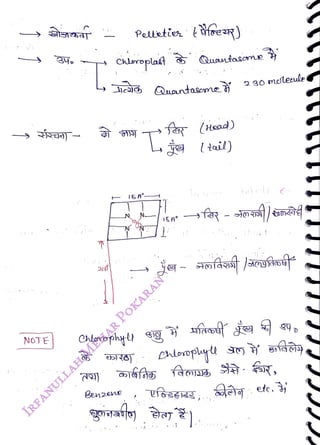 → खोजकर्ता - Pelletier (पैल्टियर)
→ उप० → Chloroplast के Quantasome में
→ प्रत्येक Quantasome में 230 molecule
→ संरचना - दो भाग → सिर (Head)
→ पूँछ (tail)
15 A°
N N
Mg
N N
15 A°
→ सिर - जलरागी /
→ पूँछ - जलविरागी / जलप्रतिकर्षी
20A°
NOTE
Chlorophyll अणु में प्रतिकर्षी पूँछ की उप०
के कारण Chlorophyll जल में अविलेय
तथा कार्बनिक विलायक जैसे - ईथर,
Benzene, एल्डिहाइड, कीटोन etc. में
घुलनशील होता है।
IRFANULLAH MEHAR POKARAN